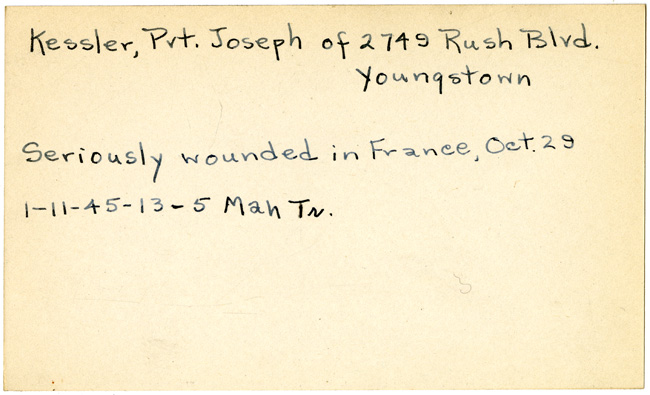 Kessler, Pvt. Joseph of 2749 Rush Blvd.
Youngstown
Seriously wounded in France, Oct. 29
1-11-45-13-5 Mah Tr.